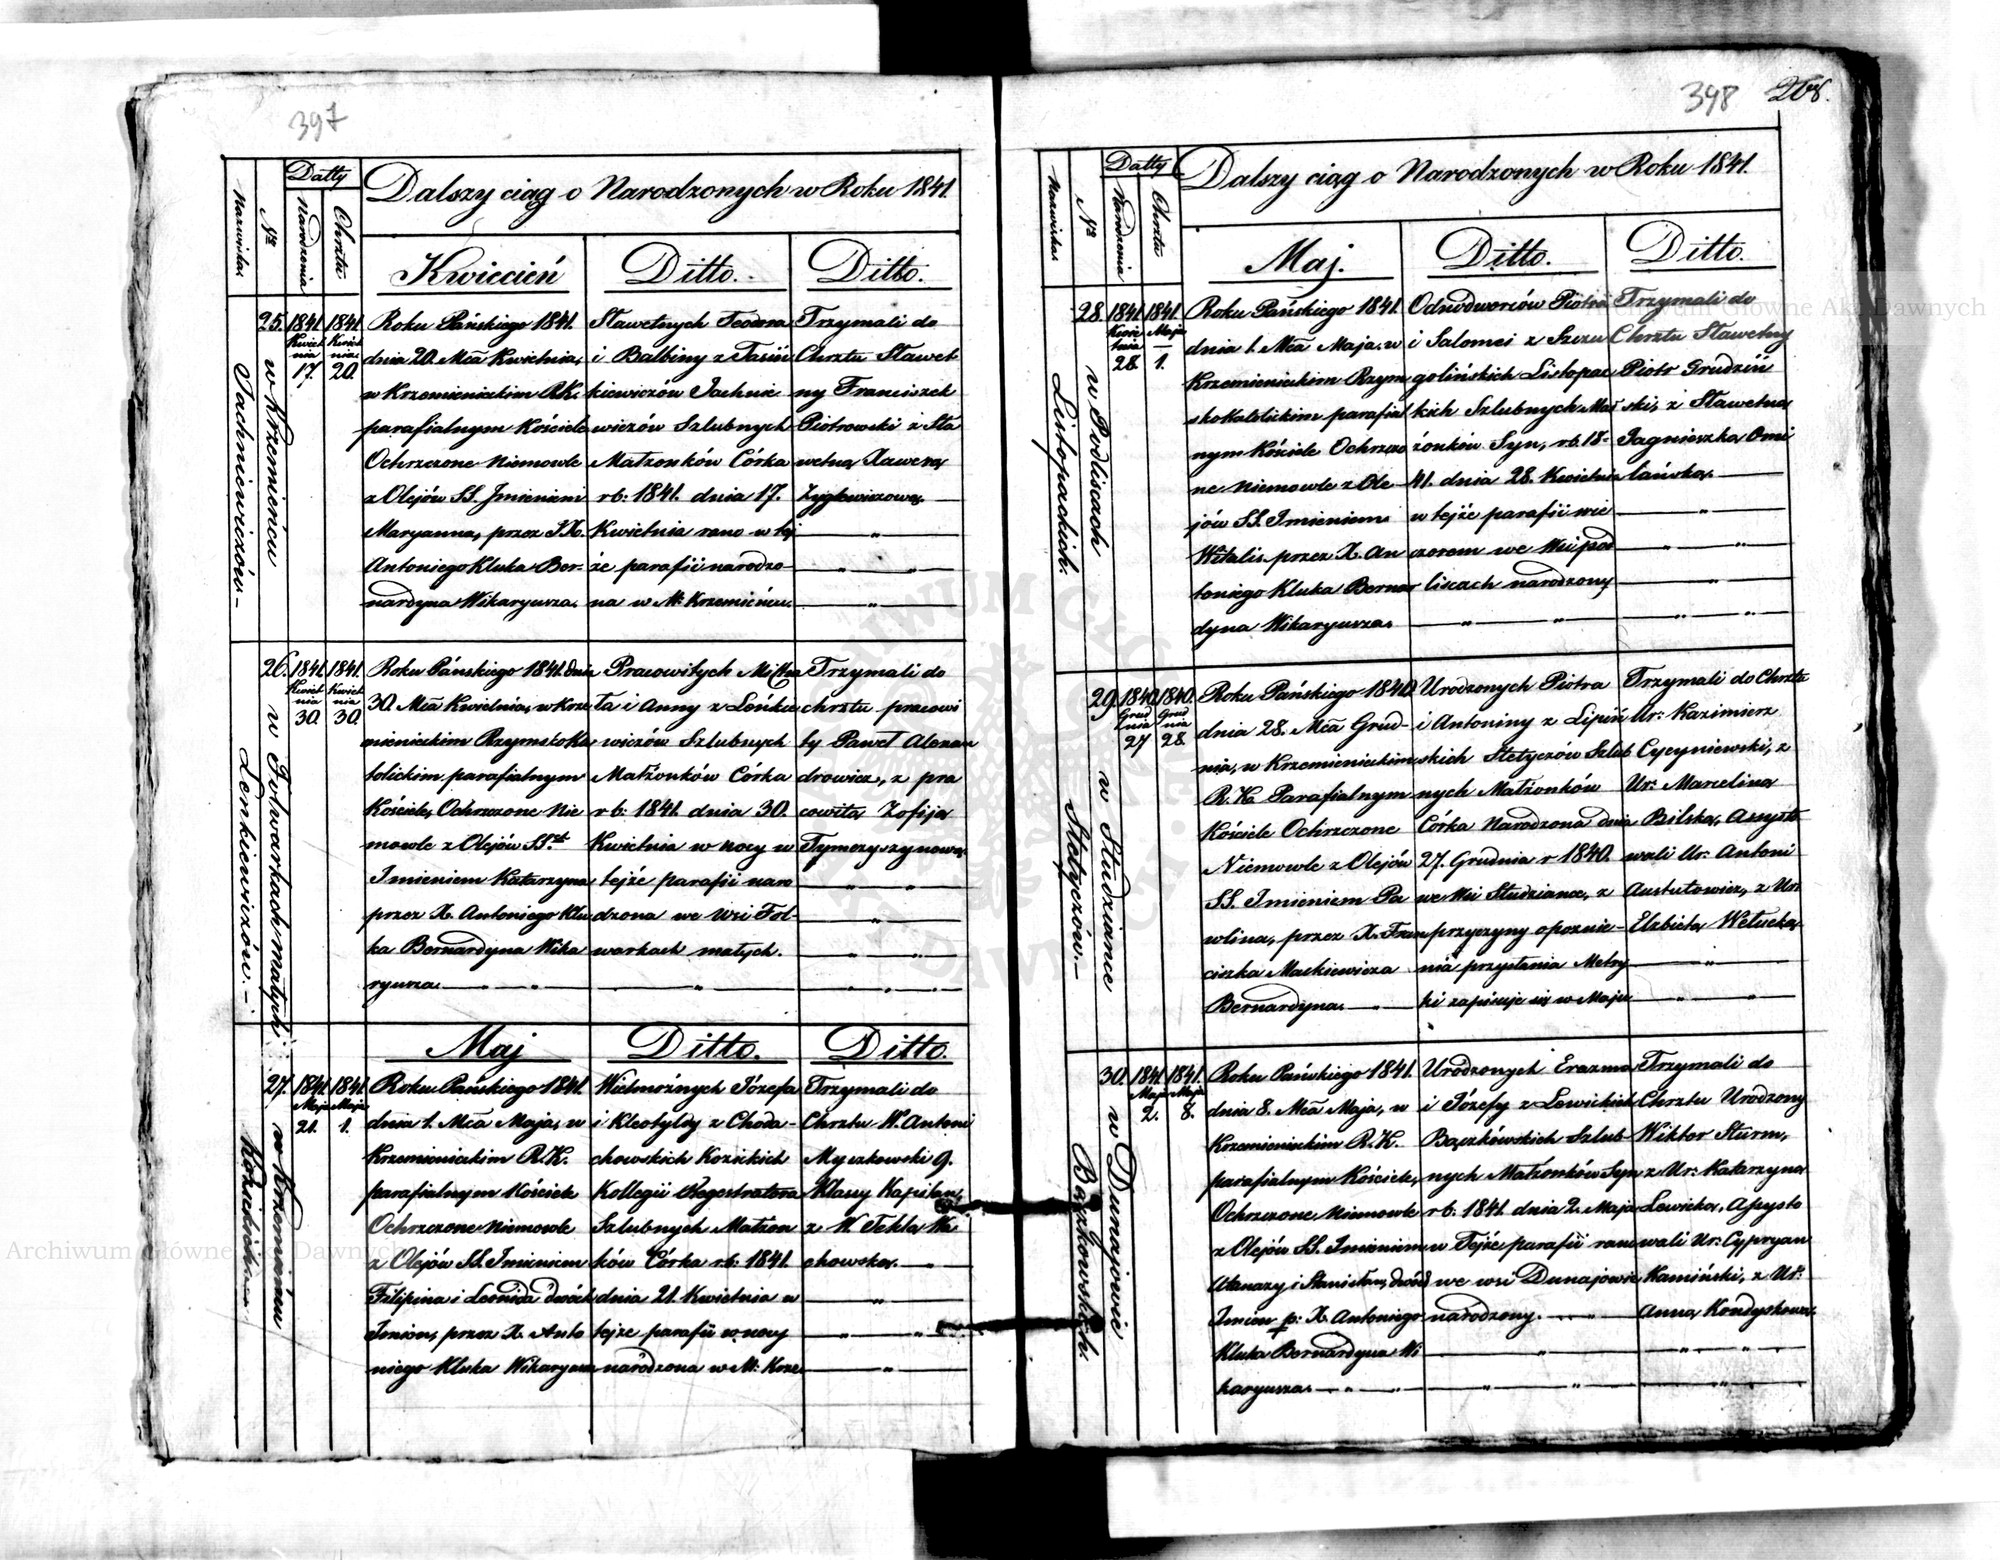 397
Datty
Nazwiska
Nº
Narodzenia
Chrztu
Dalszy ciąg o Narodzonych w Roku 1841.
Kwiecień
Ditto.
Ditto.
25.
w Krzemieńcu
Jachniewiczów
1841.
Kwiet
nia
17.
1841.
Kwiet
nia
20.
Roku Pańskiego 1841.
dnia 20. Mca Kwietnia,
w Krzemienieckim R.K.
parafialnym Kościele
Ochrzczone Niemowle
z Olejów SS. Imieniem
Maryanna, przez J.X.
Antoniego Kluka Ber-
nardyna Wikaryusza.
Sławetnych Teodora
i Balbiny z Jasiń
kiewiczów Jachnie
wiczów Szlubnych
Małżonków Córka
rb: 1841. dnia 17.
Kwietnia rano w tej
że parafii narodzo-
na w M: Krzemieńcu.
Trzymali do
Chrztu Sławet
ny Franciszek
Piotrowski z Sła
wetną Xawerą
Zyglewiczową.
26.
w Folwarkach małych
Lenkiewiczów.
1841.
Kwiet
nia
30.
1841.
Kwiet
nia
30.
Roku Pańskiego 1841. dnia
30. Mca Kwietnia, w Krze
mienieckim Rzymsko Ka
tolickim parafialnym
Kościele, Ochrzczone Nie
mowle z Olejów SS.
Imieniem Katarzyna
przez X. Antoniego Klu
ka Bernardyna Wika
ryusza.
Pracowitych Mi
ta i Anny z Leńkie
wiczów Szlubnych
Małżonków Córka
rb: 1841. dnia 30.
Kwietnia w nocy w
tejże parafii naro
dzona we Wsi Fol-
warkach małych.
Trzymali do
chrztu pracowi
ty Paweł Alexan
drowicz, z pra
cowitą Zofiją
Tymczyszynową.
Maj
Ditto.
Ditto.
27.
w Krzemieńcu
Kozickich
1841.
Maja
21.
1841.
Maja
1.
Roku Pańskiego 1841.
dnia 1. Mca Maja, w
Krzemienieckim R.K.
parafialnym Kościele
Ochrzczone Niemowle
z Olejów SS. Imieniem
Filipina i Leonida dwóch
Imion, przez X. Anto
niego Kluka Wikaryusza
Wielmożnych Józefa
i Kleotyldy z Choda-
chowskich Kozickich
Kollegii Regestratora
Szlubnych Małżon
ków Córka rb: 1841.
dnia 21. Kwietnia w
tejże parafii w nocy
narodzona w M: Krze.
Trzymali do
Chrztu W. Antoni
Myczkowski 9.
Klassy Kapitan,
z W. Teklą Wi
chowską.
398
268.
Datty
Nazwiska
Nº
Narodzenia
Chrztu
Dalszy ciąg o Narodzonych w Roku 1841.
Maj.
Ditto.
Ditto.
28.
w Podliscach
Listopackich.
1841.
Kwie
tnia
28.
1841.
Maja
1.
Roku Pańskiego 1841.
dnia 1. Mca Maja, w
Krzemienieckim Rzym
sko Katolickim parafial
nym Kościele Ochrzczo
ne Niemowle z Ole-
jów SS. Imieniem
Witalis, przez X. An
toniego Kluka Bernar
dyna Wikaryusza.
Odnodworców Piotra
i Salomei z Szczu
golińskich Listopac
kich Szlubnych Mał
żonków Syn, rb. 18-
41. dnia 28. Kwietnia
w tejże parafii wie
czorem we Wsi pod
liscach narodzony
Trzymali do
Chrztu Sławetny
Piotr Grudziń
ski, z Sławetną
Jagnieszką Omi
lańską.
29.
w Studziance
Stetyczów.
1840.
Grud
nia
27
1840.
Grud
nia
28.
Roku Pańskiego 1840
dnia 28. Mca Grud-
nia, w Krzemienieckim
R.K. Parafialnym
Kościele Ochrzczone
Niemowle z Olejów
SS. Imieniem Pa
wlina, przez X. Fran
ciszka Mackiewicza
Bernardyna.
Urodzonych Piotra
i Antoniny z Lipiń
skich Stetyczów Szlub
nych Małżonków
Córka Narodzona dnia
27. Grudnia r 1840.
we Wsi Studziance, z
przyczyny opoźnie-
nia przysłania Metry
ki zapisuje się w Maju
Trzymali do Chrztu
Ur: Kazimierz
Cycyniewski, z
Ur: Marcelina
Bilską, Assysto
wali Ur: Antoni
Austutowicz, z Ur:
Elżbietą Wetucką.
30.
w Dunajowie
Bączkowskich.
1841.
Maja
2.
1841.
Maja
8.
Roku Pańskiego 1841.
dnia 8. Mca Maja, w
Krzemienieckim R.K.
parafialnym Kościele,
Ochrzczone Niemowle
z Olejów SS. Imieniem
Atanazy i Stanisław, dwóch
Imion p: X. Antoniego
Kluka Bernardyna Wi
karyusza.
Urodzonych Erazma
i Józefy z Lewickich
Bączkówskich Szlub-
nych Małżonków Syn
rb. 1841. dnia 2. Maja
w Tejże parafii rano
we wsi Dunajowie
narodzony.
Trzymali do
Chrztu Urodzony
Wiktor Sturm,
z Ur: Katarzyną
Lewicką, Assysto
wali Ur: Cypryan
Kamiński, z Ur:
Anną Kondyskową.
Archiwum Główne Akt Dawnych
Archiwum Główne Akt Dawnych